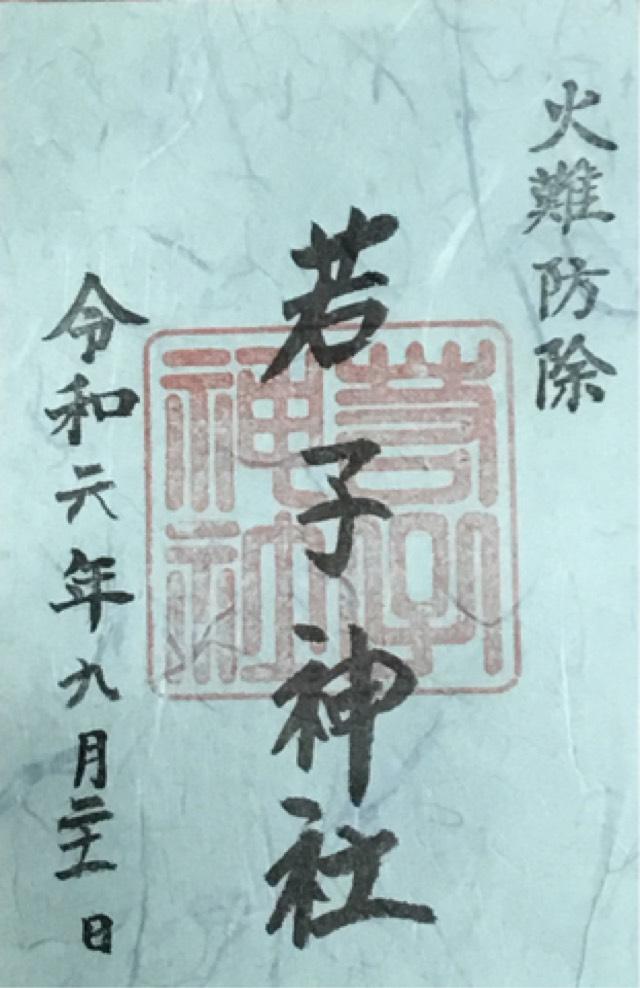 火難防除
若子神社
若子神社
令和六年九月二十一日